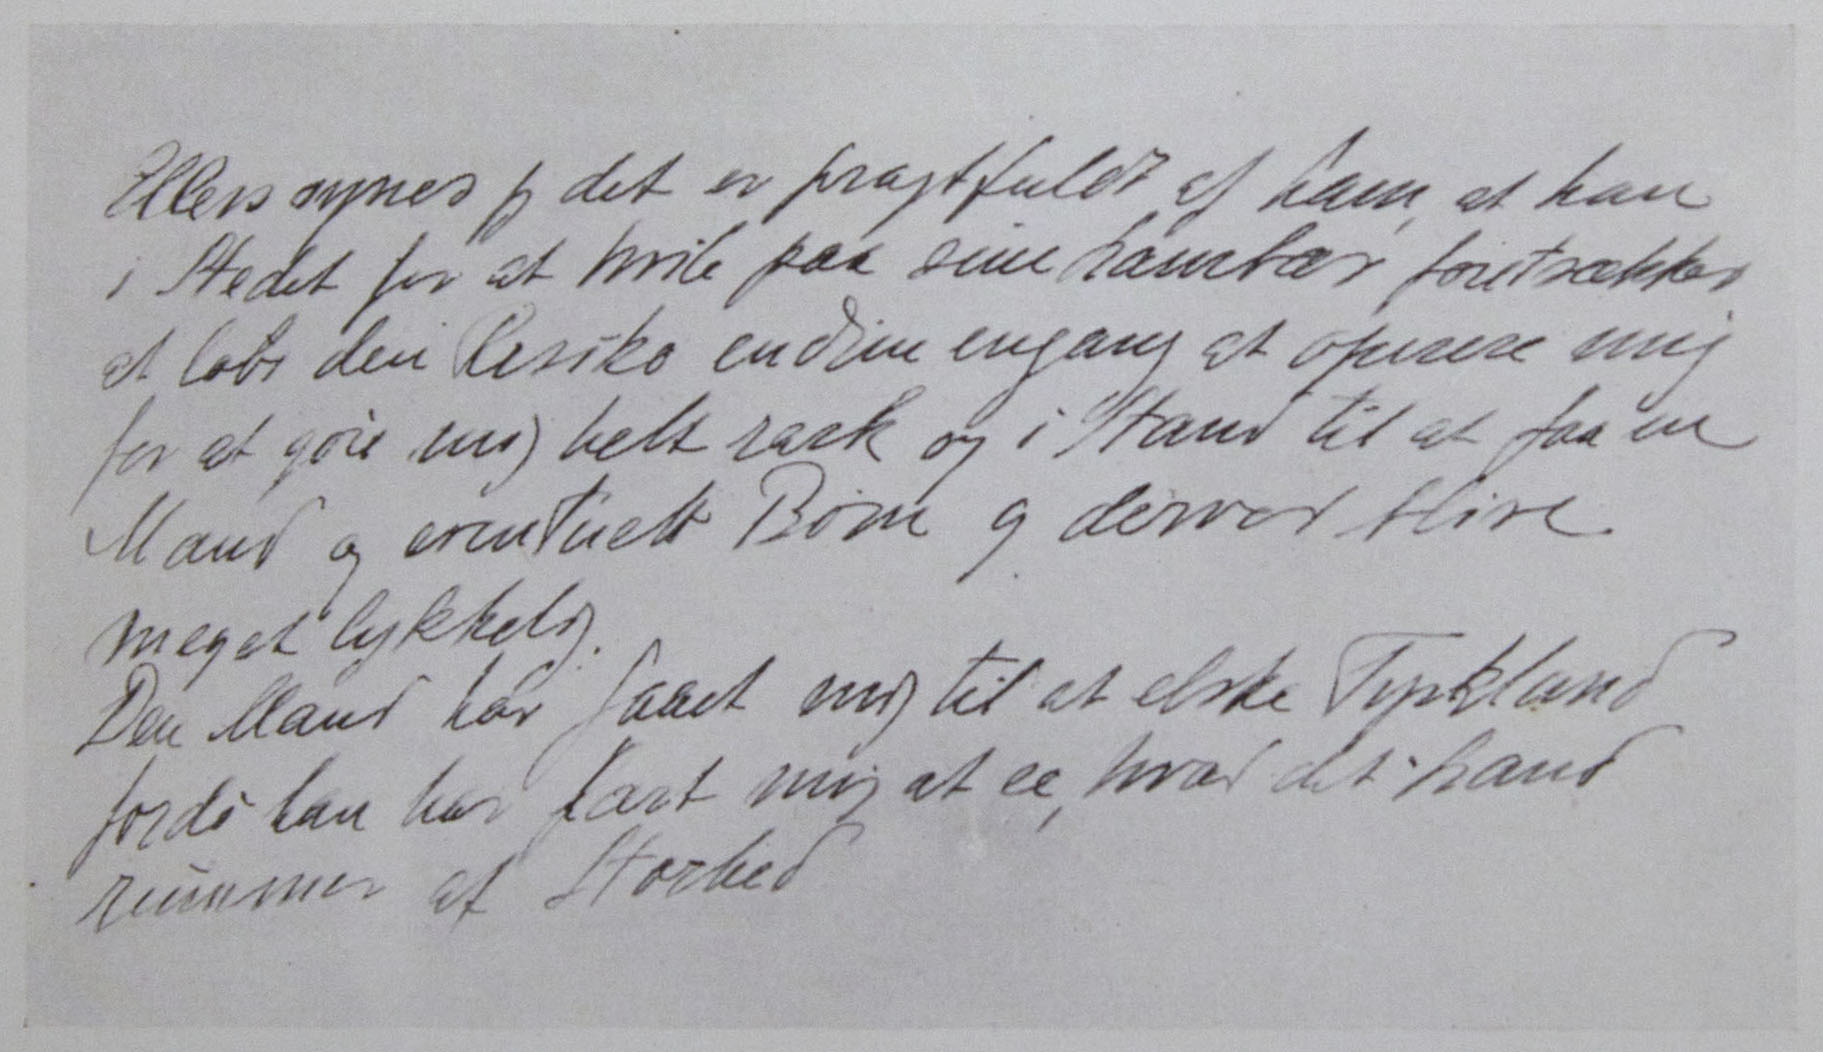 Ellers synes jeg det er pragtfuldt af ham, at han
i Stedet for at hvile paa sine Laurbær foretrækker
at løbe den Risiko endnu engang at operere mig
for at gøre mig helt rask og i Stand til at faa en
Mand og eventuelt Børn og derved blive
meget lykkelig.
Den Mand har faaet mig til at elske Tyskland
fordi han har lært mig at se, hvad det Land
rummer af Storhed